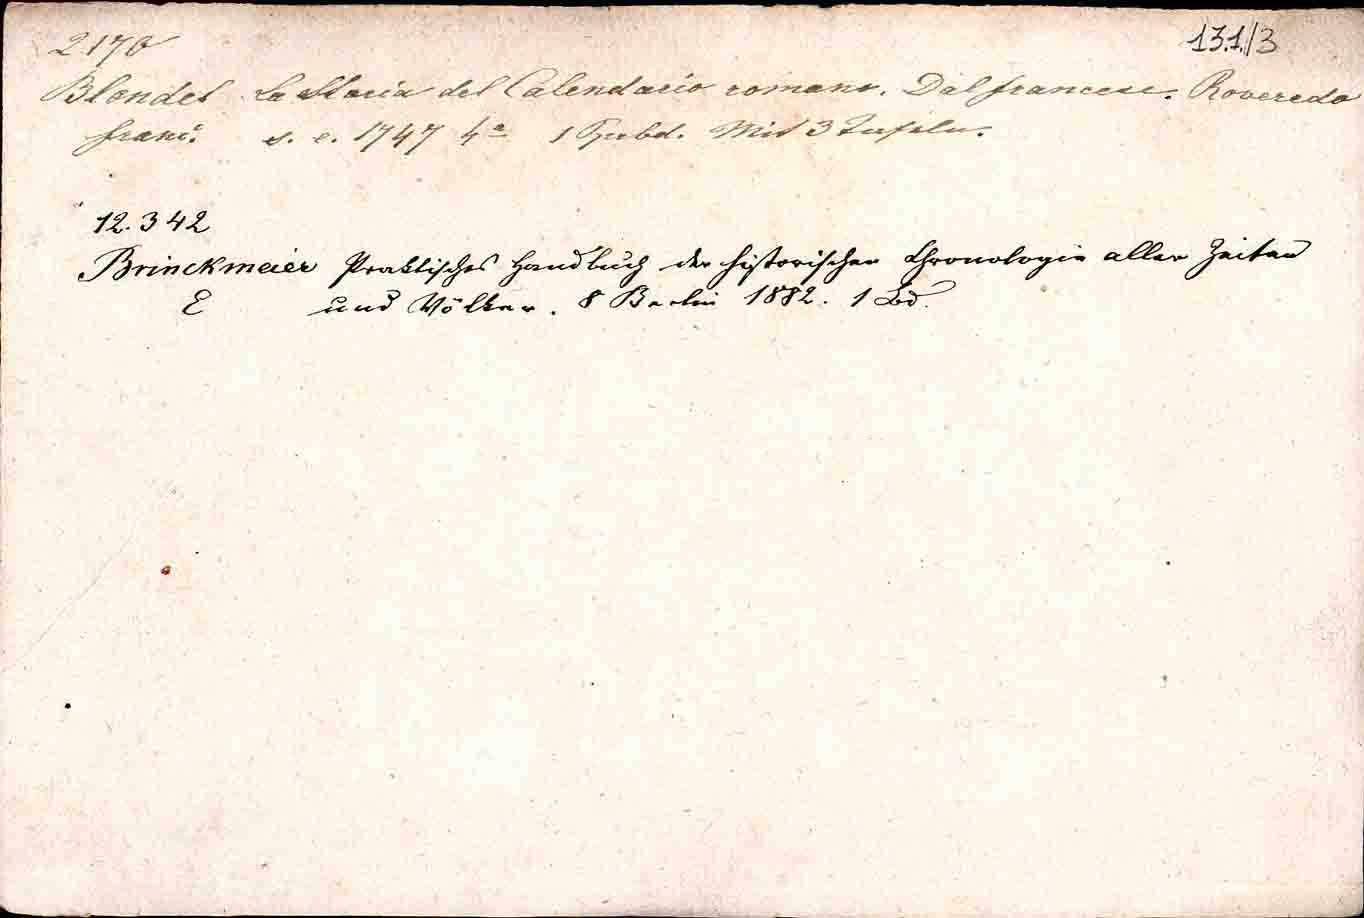 13.1./3
2170
Blondel La Storia del Calendario romano. Dal francese. Roveredo
franc. s. e. 1747 4º 1 Ppbd. Mit 3 Tafeln.
12.342
Brinckmeier Praktisches Handbuch der historischen Chronologie aller Zeiten
E und Völker. 8 Berlin 1882. 1 Bd.